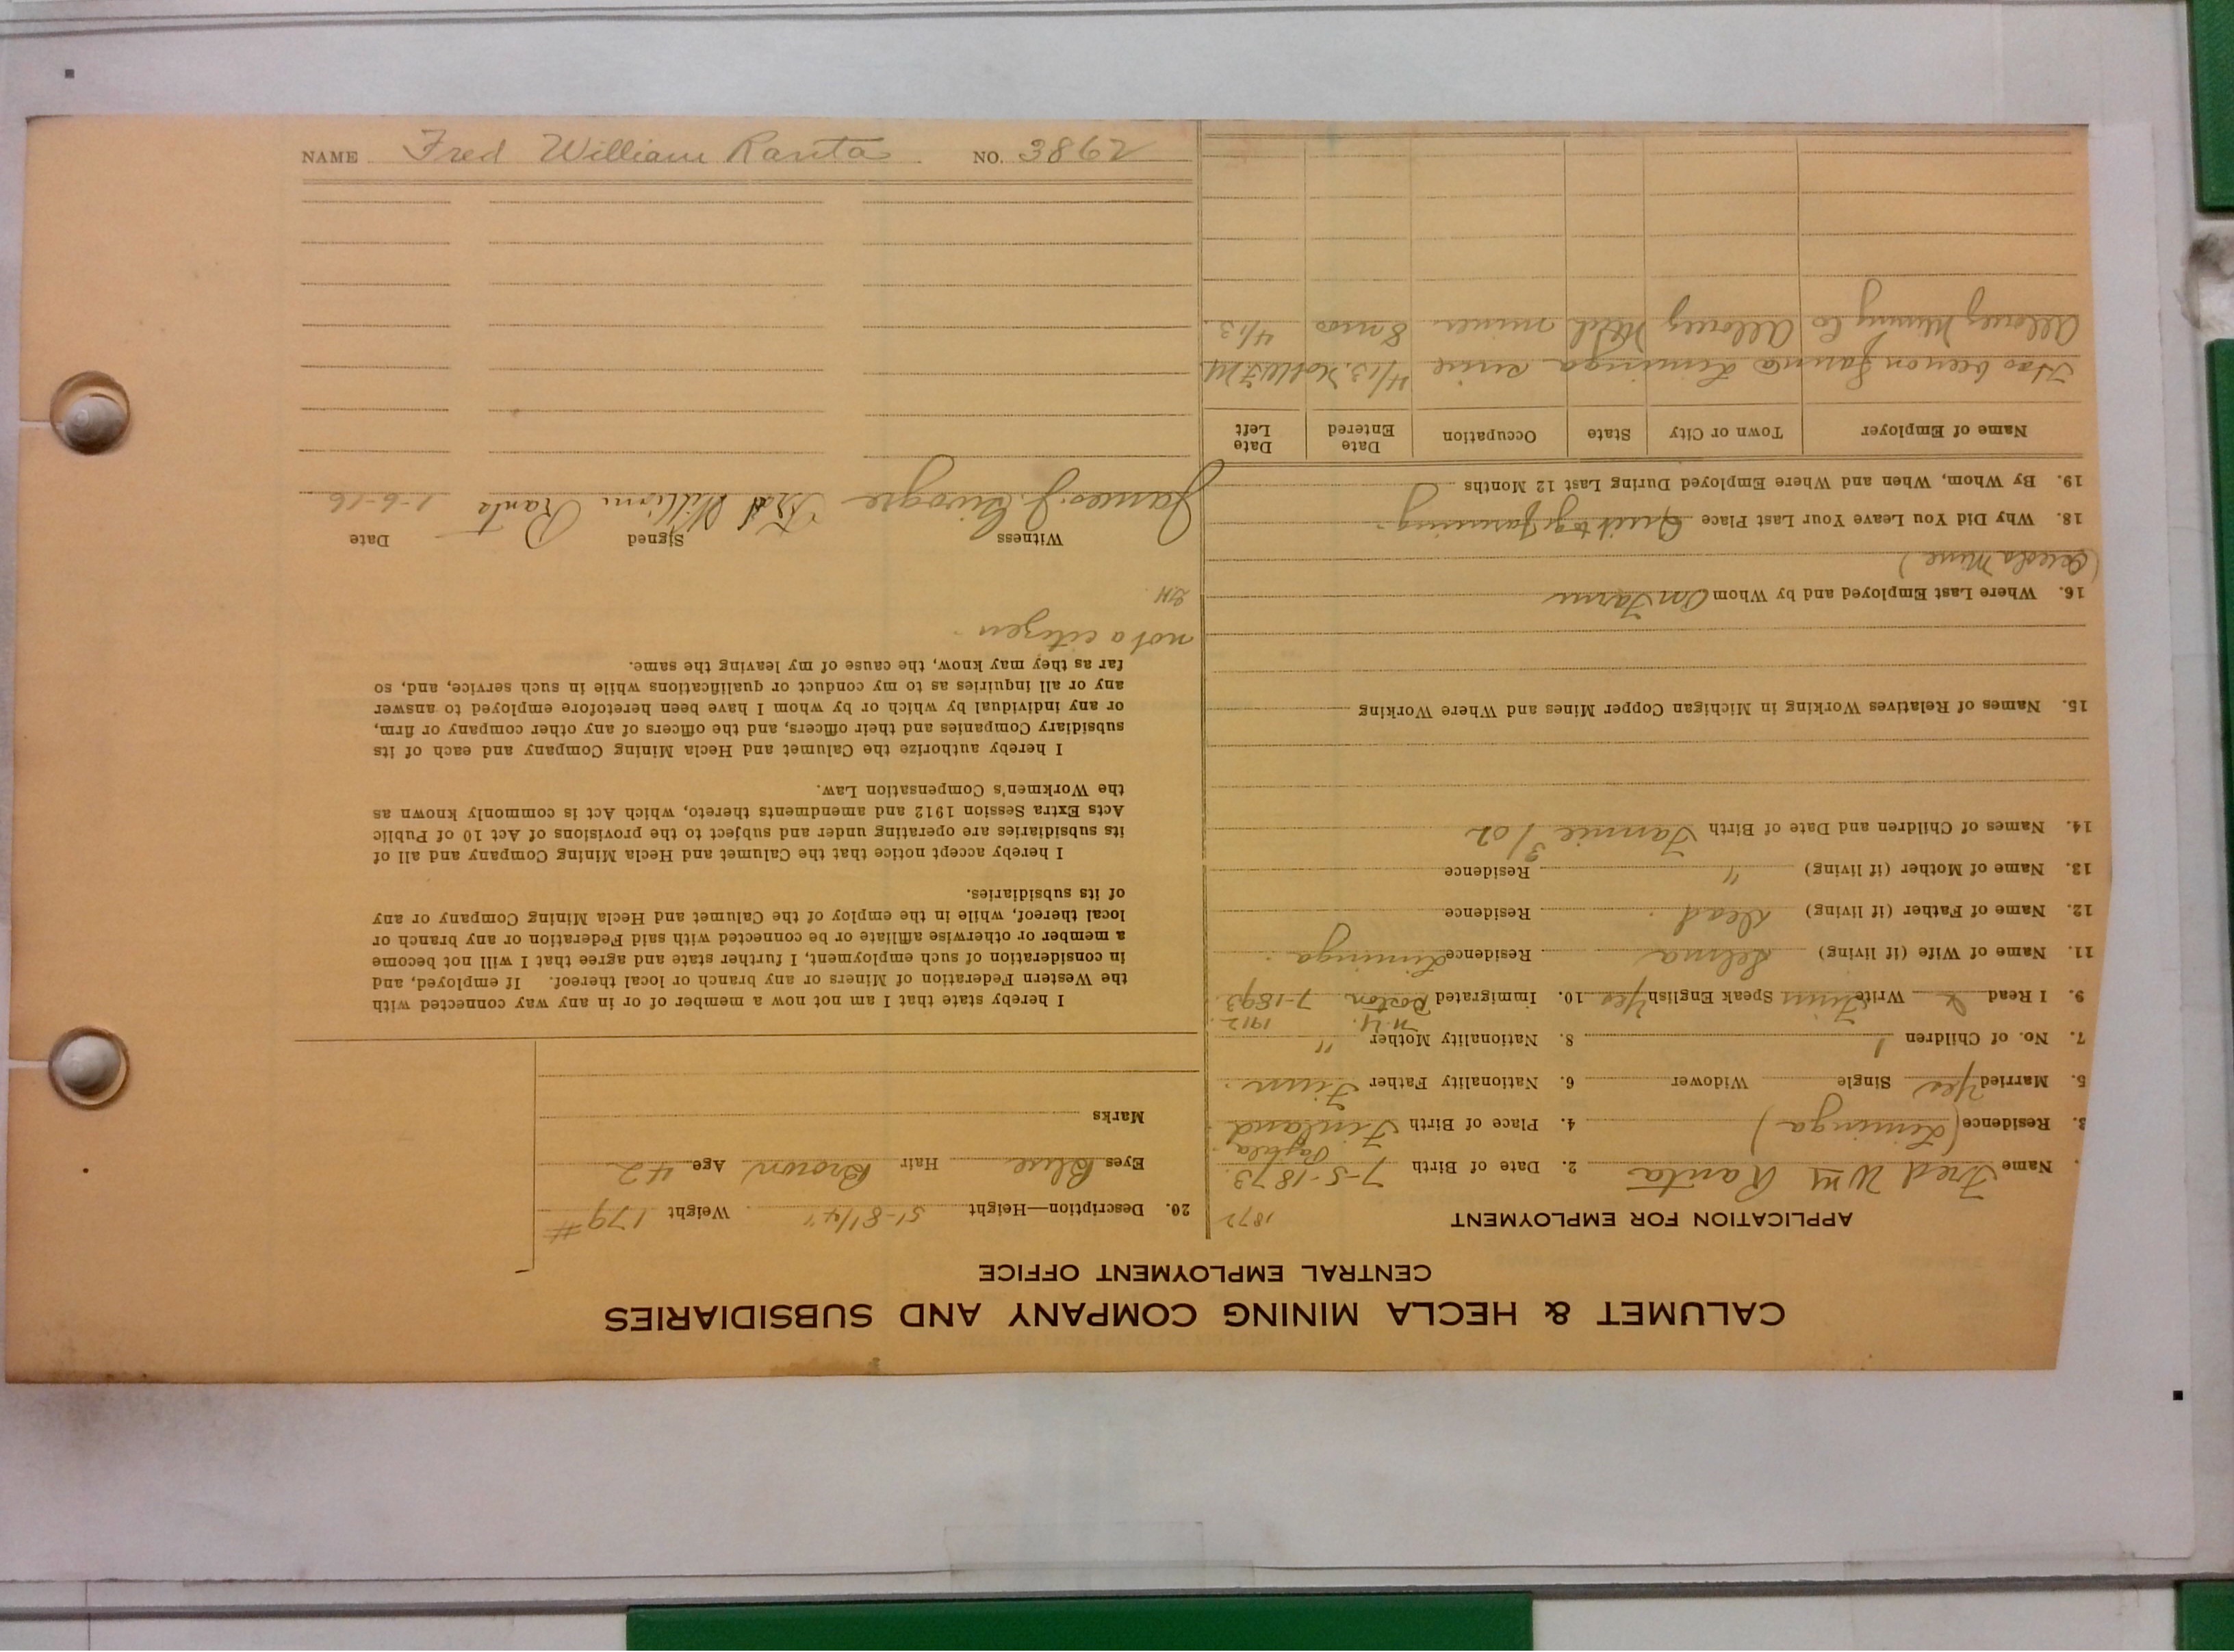 CALUMET & HECLA MINING COMPANY AND SUBSIDIARIES
CENTRAL EMPLOYMENT OFFICE
APPLICATION FOR EMPLOYMENT
1872
1. Name Fred Wm Ranta 2. Date of Birth 7-5-1873.
3. Residence (Liminga) 4. Place of Birth Finland
5. Married Yes Single Widower 6. Nationality Father Finn.
7. No. of Children 1 8. Nationality Mother "
N.Y. 1912
9. I Read & Write Finn Speak English Yes 10. Immigrated Boston 7-1893.
11. Name of Wife (if living) Selma Residence Liminga
12. Name of Father (if living) Dead. Residence
13. Name of Mother (if living) " Residence
14. Names of Children and Date of Birth Fannie 3/02
15. Names of Relatives Working in Michigan Copper Mines and Where Working
16. Where Last Employed and by Whom On Farm
Mine)
18. Why Did You Leave Your Last Place Quit to go farming.
19. By Whom, When and Where Employed During Last 12 Months
Name of Employer Town or City State Occupation Date Entered Date Left
Has been on farm @ Liminga since 4/13.
Allouez Mining Co Allouez Mich miner 8 mos 4/13.
20. Description—Height 5'-8 1/4" Weight 179#
Eyes Blue Hair Brown Age 42
Marks
I hereby state that I am not now a member of or in any way connected with
the Western Federation of Miners or any branch or local thereof. If employed, and
in consideration of such employment, I further state and agree that I will not become
a member or otherwise affiliate or be connected with said Federation or any branch or
local thereof, while in the employ of the Calumet and Hecla Mining Company or any
of its subsidiaries.
I hereby accept notice that the Calumet and Hecla Mining Company and all of
its subsidiaries are operating under and subject to the provisions of Act 10 of Public
Acts Extra Session 1912 and amendments thereto, which Act is commonly known as
the Workmen's Compensation Law.
I hereby authorize the Calumet and Hecla Mining Company and each of its
subsidiary Companies and their officers, and the officers of any other company or firm,
or any individual by which or by whom I have been heretofore employed to answer
any or all inquiries as to my conduct or qualifications while in such service, and, so
far as they may know, the cause of my leaving the same.
not a citizen.
Witness Signed Date
James J. Fred William Ranta 1-6-16
NAME Fred William Ranta NO. 3862